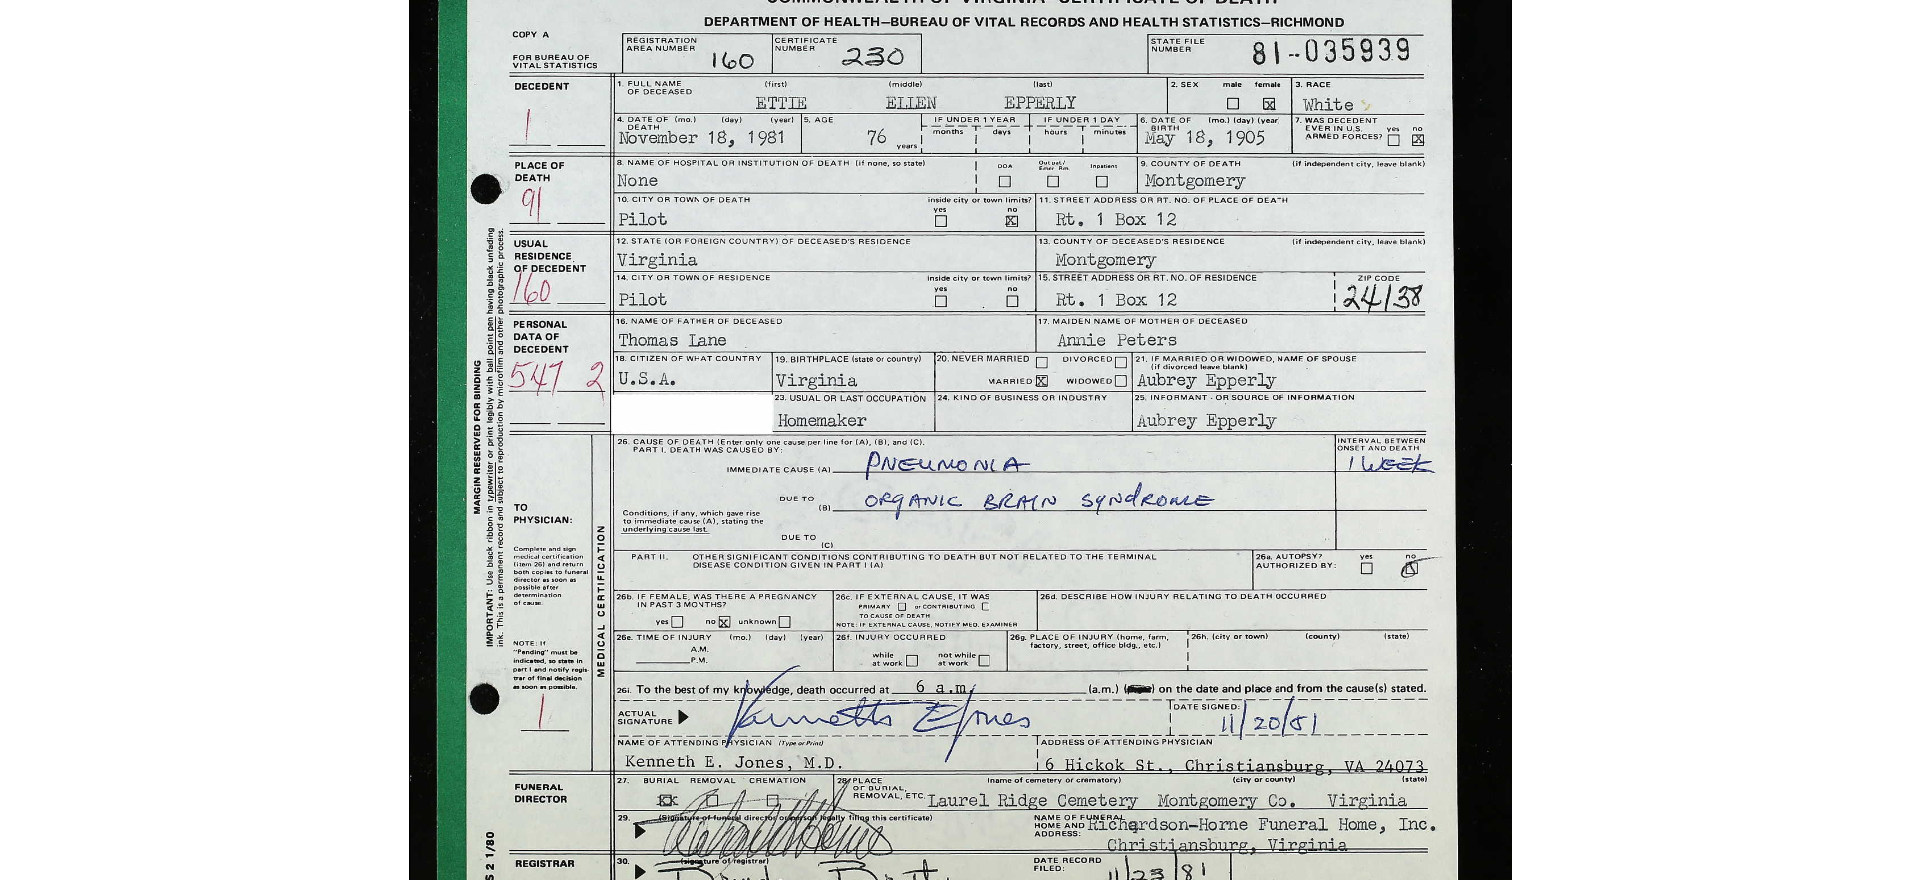 COMMONWEALTH OF VIRGINIA CERTIFICATE OF DEATH
DEPARTMENT OF HEALTH—BUREAU OF VITAL RECORDS AND HEALTH STATISTICS—RICHMOND
COPY A
FOR BUREAU OF VITAL STATISTICS
REGISTRATION AREA NUMBER 160
CERTIFICATE NUMBER 230
STATE FILE NUMBER 81-035939
DECEDENT
1
1. FULL NAME OF DECEASED (first) (middle) (last)
ETTIE ELLEN EPPERLY
2. SEX male female ☒
3. RACE
White
4. DATE OF DEATH (mo.) (day) (year)
November 18, 1981
5. AGE
76 years
IF UNDER 1 YEAR months days
IF UNDER 1 DAY hours minutes
6. DATE OF BIRTH (mo.) (day) (year
May 18, 1905
7. WAS DECEDENT EVER IN U.S. ARMED FORCES? yes no ☒
PLACE OF DEATH
91
8. NAME OF HOSPITAL OR INSTITUTION OF DEATH (if none, so state)
None
DOA Out pat/ Emer Rm. Inpatient
9. COUNTY OF DEATH (if independent city, leave blank)
Montgomery
10. CITY OR TOWN OF DEATH inside city or town limits? yes no ☒
Pilot
11. STREET ADDRESS OR RT. NO. OF PLACE OF DEATH
Rt. 1 Box 12
USUAL RESIDENCE OF DECEDENT
160
12. STATE (OR FOREIGN COUNTRY) OF DECEASED'S RESIDENCE
Virginia
13. COUNTY OF DECEASED'S RESIDENCE (if independent city, leave blank)
Montgomery
14. CITY OR TOWN OF RESIDENCE inside city or town limits? yes no
Pilot
15. STREET ADDRESS OR RT. NO. OF RESIDENCE ZIP CODE
Rt. 1 Box 12 24138
PERSONAL DATA OF DECEDENT
547 2
16. NAME OF FATHER OF DECEASED
Thomas Lane
17. MAIDEN NAME OF MOTHER OF DECEASED
Annie Peters
18. CITIZEN OF WHAT COUNTRY
U.S.A.
19. BIRTHPLACE (state or country)
Virginia
20. NEVER MARRIED DIVORCED
MARRIED ☒ WIDOWED
21. IF MARRIED OR WIDOWED, NAME OF SPOUSE (if divorced leave blank)
Aubrey Epperly
23. USUAL OR LAST OCCUPATION
Homemaker
24. KIND OF BUSINESS OR INDUSTRY
25. INFORMANT - OR SOURCE OF INFORMATION
Aubrey Epperly
MARGIN RESERVED FOR BINDING
IMPORTANT: Use black ribbon in typewriter or print legibly with ball point pen having black unfading
ink. This is a permanent record and subject to reproduction by microfilm and other photographic process.
MEDICAL CERTIFICATION
TO PHYSICIAN:
Complete and sign
medical certification
(item 26) and return
both copies to funeral
director as soon as
possible after
determination
of cause.
NOTE: If
"Pending" must be
indicated, so state in
part I and notify regis-
trar of final decision
as soon as possible.
1
26. CAUSE OF DEATH (Enter only one cause per line for (A), (B), and (C).
PART I. DEATH WAS CAUSED BY:
INTERVAL BETWEEN ONSET AND DEATH
IMMEDIATE CAUSE (A) PNEUMONIA 1 WEEK
DUE TO (B) ORGANIC BRAIN SYNDROME
Conditions, if any, which gave rise
to immediate cause (A), stating the
underlying cause last.
DUE TO (C)
PART II. OTHER SIGNIFICANT CONDITIONS CONTRIBUTING TO DEATH BUT NOT RELATED TO THE TERMINAL
DISEASE CONDITION GIVEN IN PART I (A)
26a. AUTOPSY? AUTHORIZED BY: yes no ☒
26b. IF FEMALE, WAS THERE A PREGNANCY IN PAST 3 MONTHS?
yes no ☒ unknown
26c. IF EXTERNAL CAUSE, IT WAS
PRIMARY or CONTRIBUTING
TO CAUSE OF DEATH
NOTE: IF EXTERNAL CAUSE, NOTIFY MED. EXAMINER
26d. DESCRIBE HOW INJURY RELATING TO DEATH OCCURRED
26e. TIME OF INJURY (mo.) (day) (year)
A.M.
P.M.
26f. INJURY OCCURRED
while at work not while at work
26g. PLACE OF INJURY (home, farm, factory, street, office bldg., etc.)
26h. (city or town) (county) (state)
26i. To the best of my knowledge, death occurred at 6 a.m. (a.m.) on the date and place and from the cause(s) stated.
ACTUAL SIGNATURE Kenneth E Jones
DATE SIGNED: 11/20/81
NAME OF ATTENDING PHYSICIAN (Type or Print)
Kenneth E. Jones, M.D.
ADDRESS OF ATTENDING PHYSICIAN
6 Hickok St., Christiansburg, VA 24073
FUNERAL DIRECTOR
27. BURIAL REMOVAL CREMATION
28. PLACE OF BURIAL, REMOVAL, ETC. (name of cemetery or crematory) (city or county) (state)
Laurel Ridge Cemetery Montgomery Co. Virginia
29. (Signature of funeral director or person legally filing this certificate)
NAME OF FUNERAL HOME AND ADDRESS:
Richardson-Horne Funeral Home, Inc.
Christiansburg, Virginia
REGISTRAR
30. (signature of registrar)
DATE RECORD FILED: 11/23/81
S 2 1/80